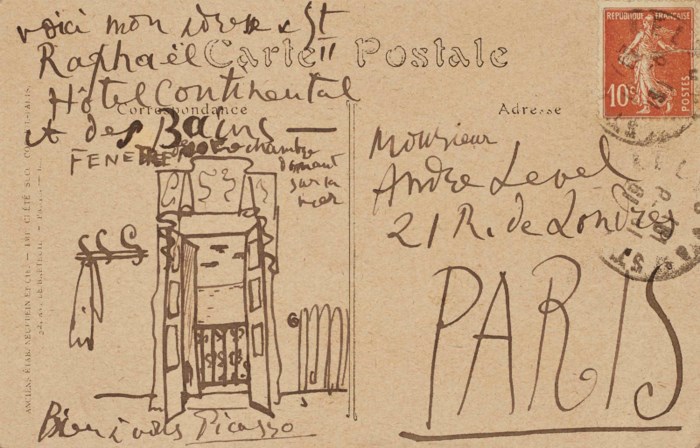 voici mon adresse St
Raphaël
Hôtel Continental
et des Bains —
Carte Postale
Correspondance
Adresse
FENETRE
chambre
donant
sur la
mer
Monsieur
Andre Level
21 R. de Londres
PARIS
Bien à vous Picasso
REPUBLIQUE FRANÇAISE
10c
POSTES